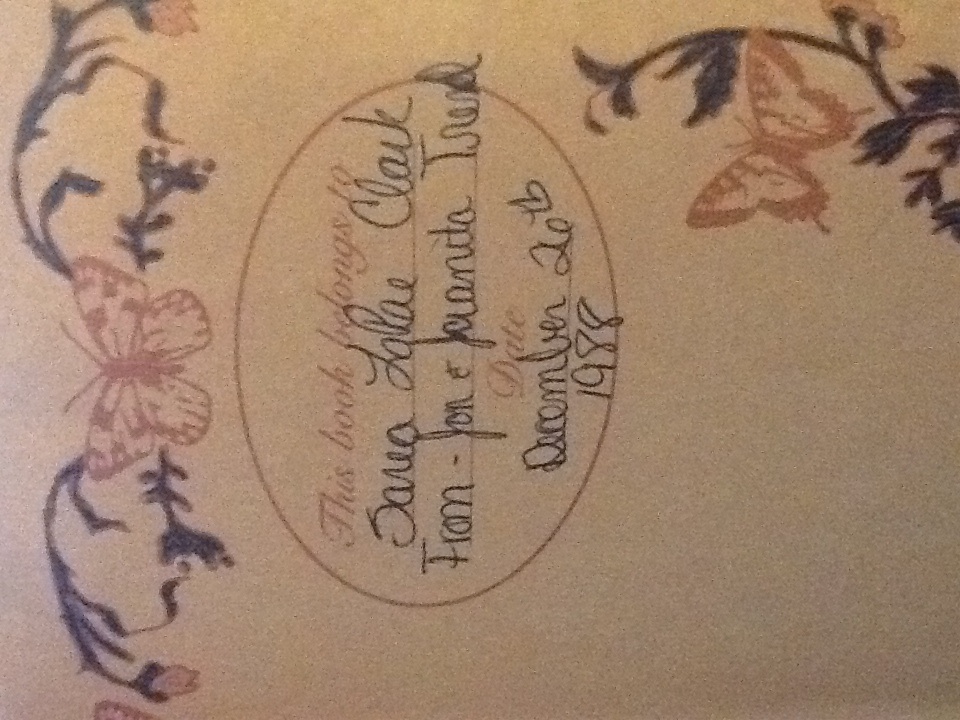 This book belongs to
Sara LaRae Clark
From - Jon & Juanita Trend
Date
December 20th
1988